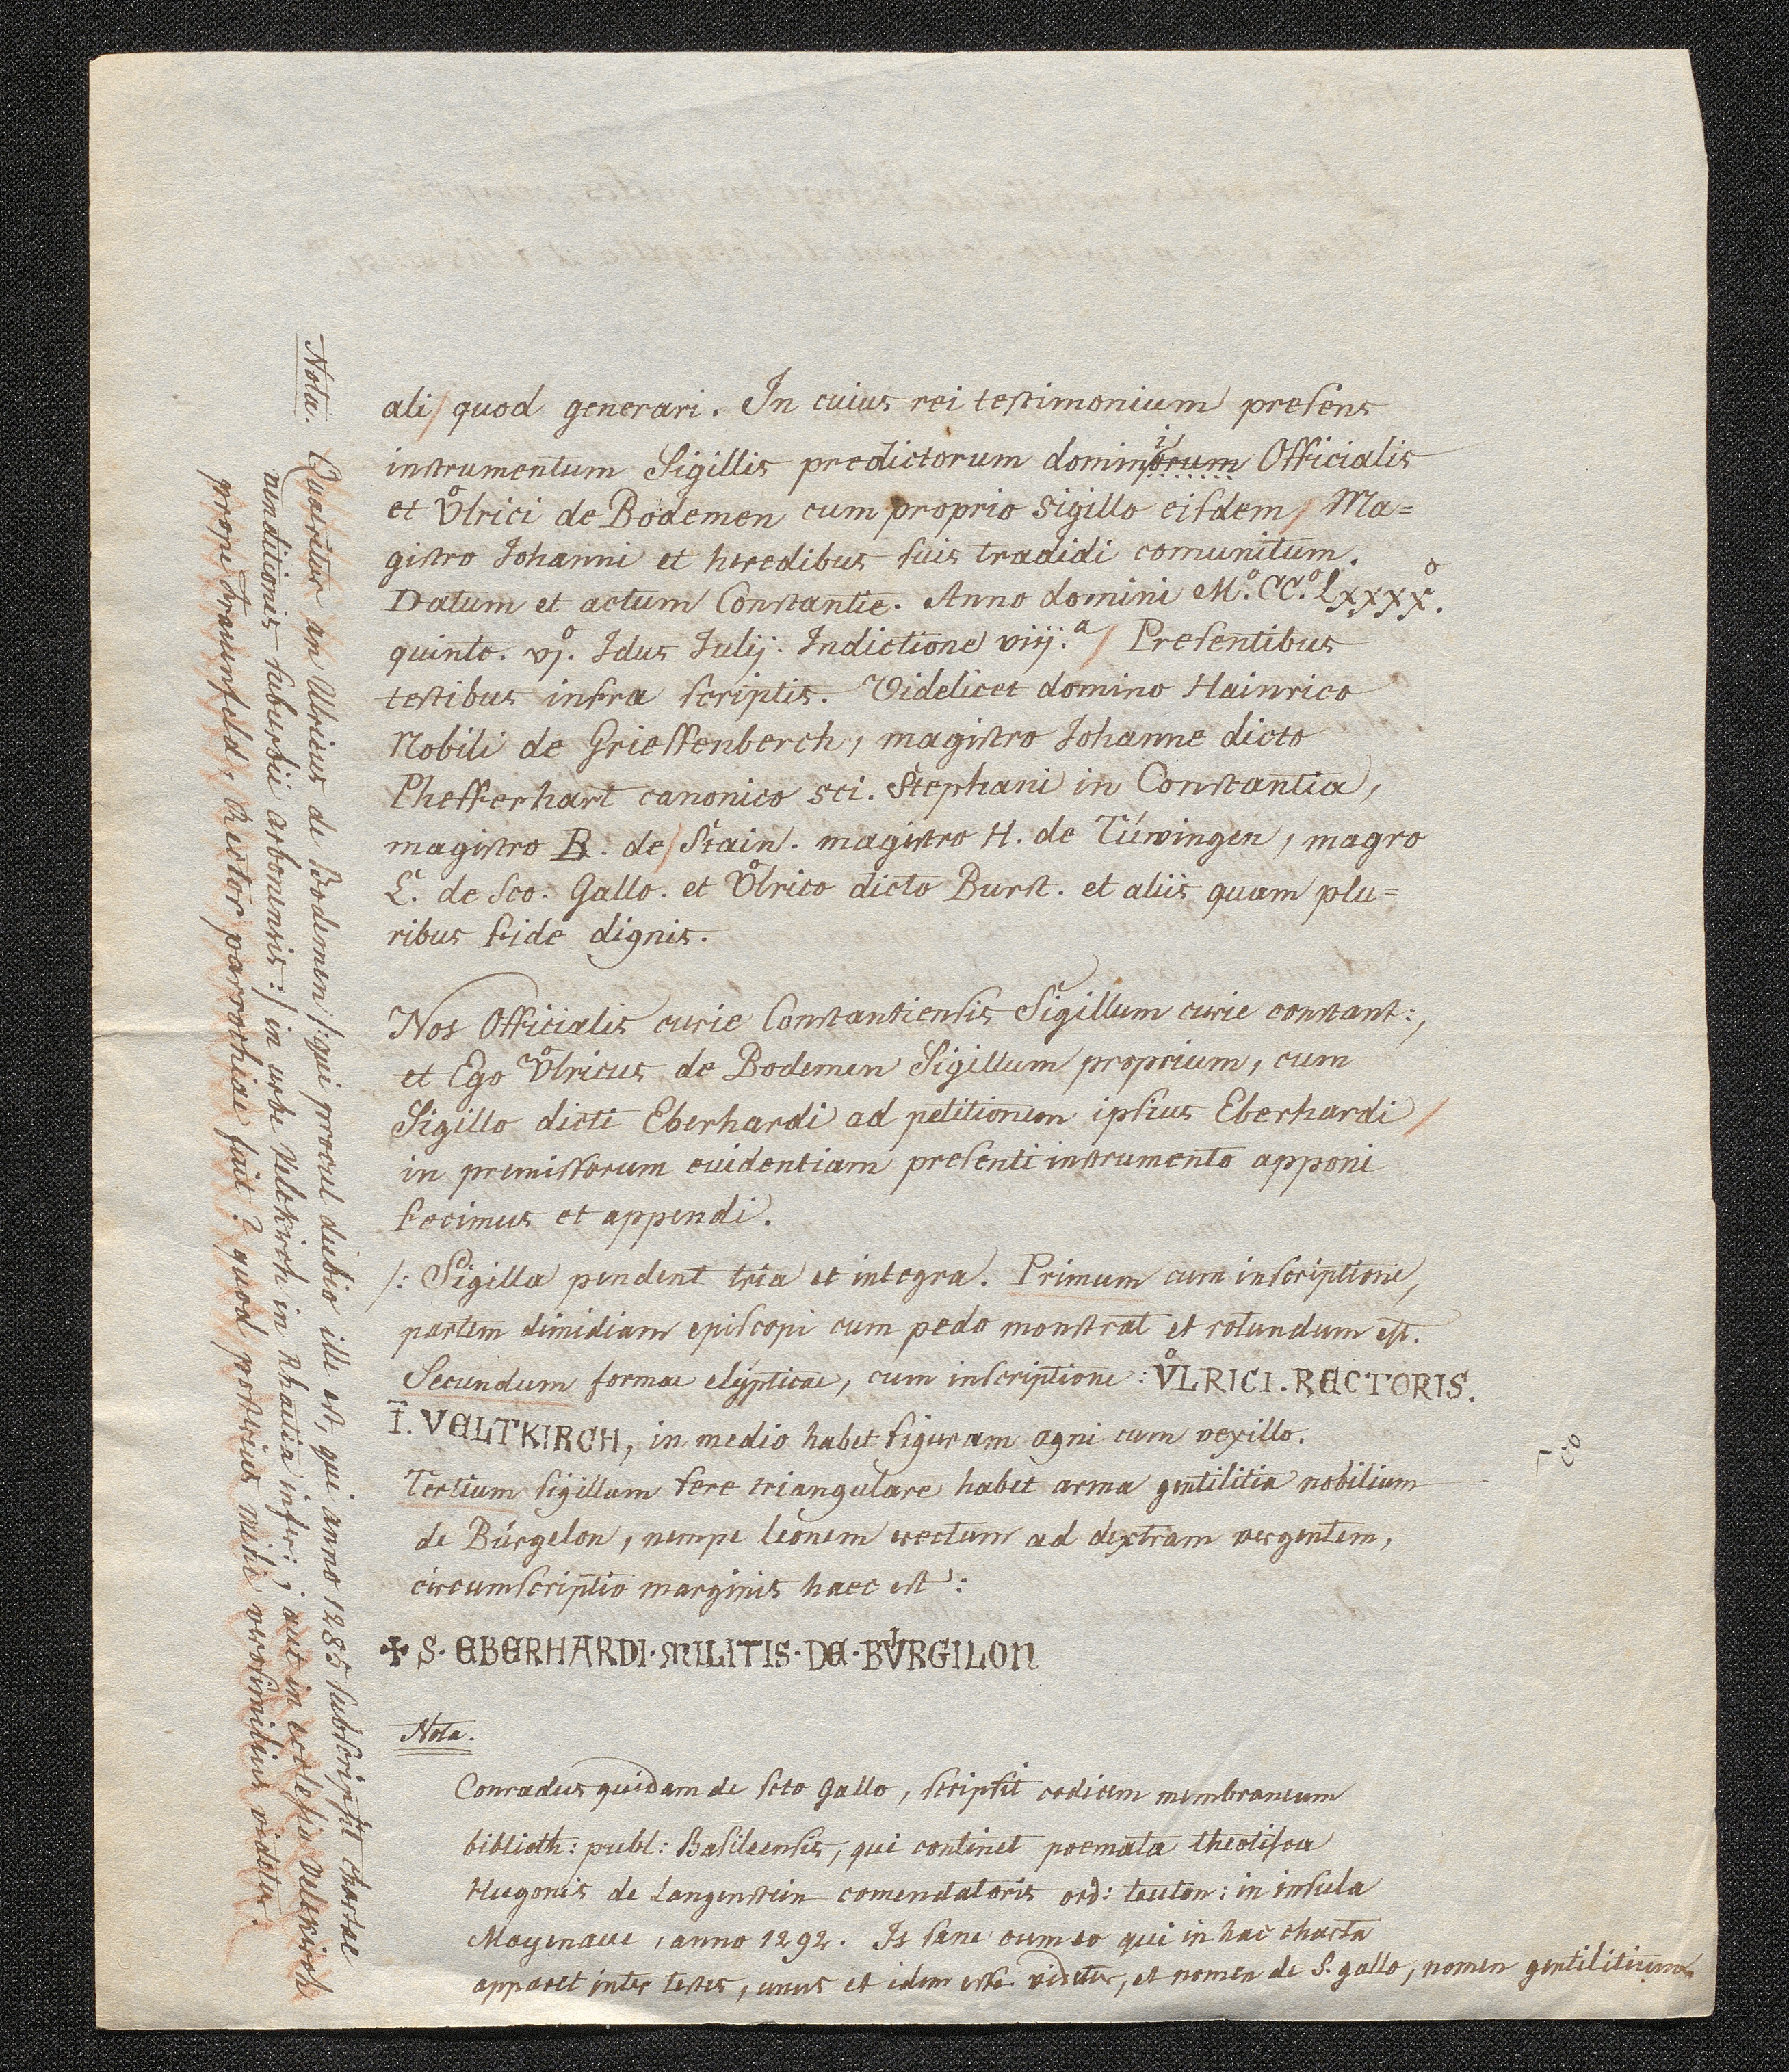 ali/ quod generari. In cuius rei testimonium presens
instrumentum Sigillis predictorum dominorum Officialis
et Vͦlrici de Bodemen cum proprio sigillo eisdem/ Ma=
gistro Johanni et heredibus suis tradidi comunitum.
Datum et actum Constantie. Anno domini M.º CC.º Lxxxx.º
quinto. vj.º Idus Julij. Indictione viij.ª/ Presentibus
testibus infra scriptis. Videlicet domino Hainrico
Nobili de Grieffenberch, magistro Johanne dicto
Phefferhart canonico sci. Stephani in Constantia,
magistro B. de/ Stain. magistro H. de Túwingen, magro
C. de Sco. Gallo. et Vͦlrico dicto Burst. et aliis quam plu=
ribus fide dignis.
Nos Officialis curie Constantiensis Sigillum curie constant:,
et Ego Vͦlricus de Bodemen Sigillum proprium, cum
Sigillo dicti Eberhardi ad petitionem ipsius Eberhardi/
in premissorum euidentiam presenti instrumento apponi
fecimus et appendi.
/: Sigilla pendent tria et integra. Primum cum inscriptione,
partem dimidiam episcopi cum pedo monstrat et rotundum est.
Secundum formae elypticae, cum inscriptione: VͦLRICI. RECTORIS.
Ī. VELTKIRCH, in medio habet figuram agni cum vexillo.
Tertium sigillum fere triangulare habet arma gentilitia nobilium
de Búrgelon, nempe leonem erectum ad dextram vergentem,
circumscriptio marginis haec est:
✠ S. EBERHARDI. MILITIS. DE. BV́RGILON
Nota.
Conradus quidam de scto Gallo, scripsit codicem membraneum
biblioth: publ: Basileensis, qui continet poemata theotisca
Hugonis de Langenstein comendatoris ord: teuton: in insula
Mayenaue, anno 1292. Is sane cum eo qui in hac charta
apparet inter testes, unus et idem esse videtur, et nomen de S. gallo, nomen gentilitium
Nota. Quaeritur an Ulricus de Bodemen /:qui procul dubio ille est, qui anno 1285 subscripsit chartae
venditionis suburbii arbonensis:/ in urbe Veltkirch in Rhaetia infer:? aut in ecclesia Veltkirch
prope Fraunfeld, Rector parrochiae fuit? quod posterius mihi verosimilius videtur.